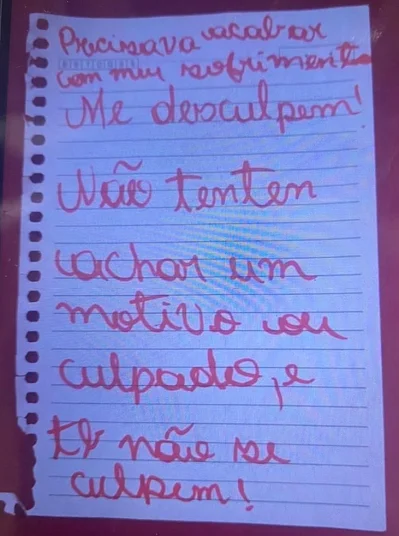 Precisava acabar
com meu sofrimento
Me desculpem!
Não tenten
achar um
motivo ou
culpado, e
não se
culpem!